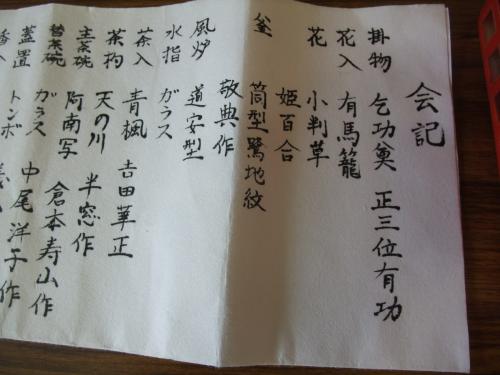 会記
掛物 乞功奠 正三位有功
花入 有馬籠
花 小判草
姫百合
釜 筒型鷺地紋
敬典作
風炉 道安型
水指 ガラス
茶入 青楓 吉田華正
茶杓 天の川 半窓作
主茶碗 阿南写 倉本寿山作
替茶碗 ガラス 中尾洋子作
蓋置 トンボ